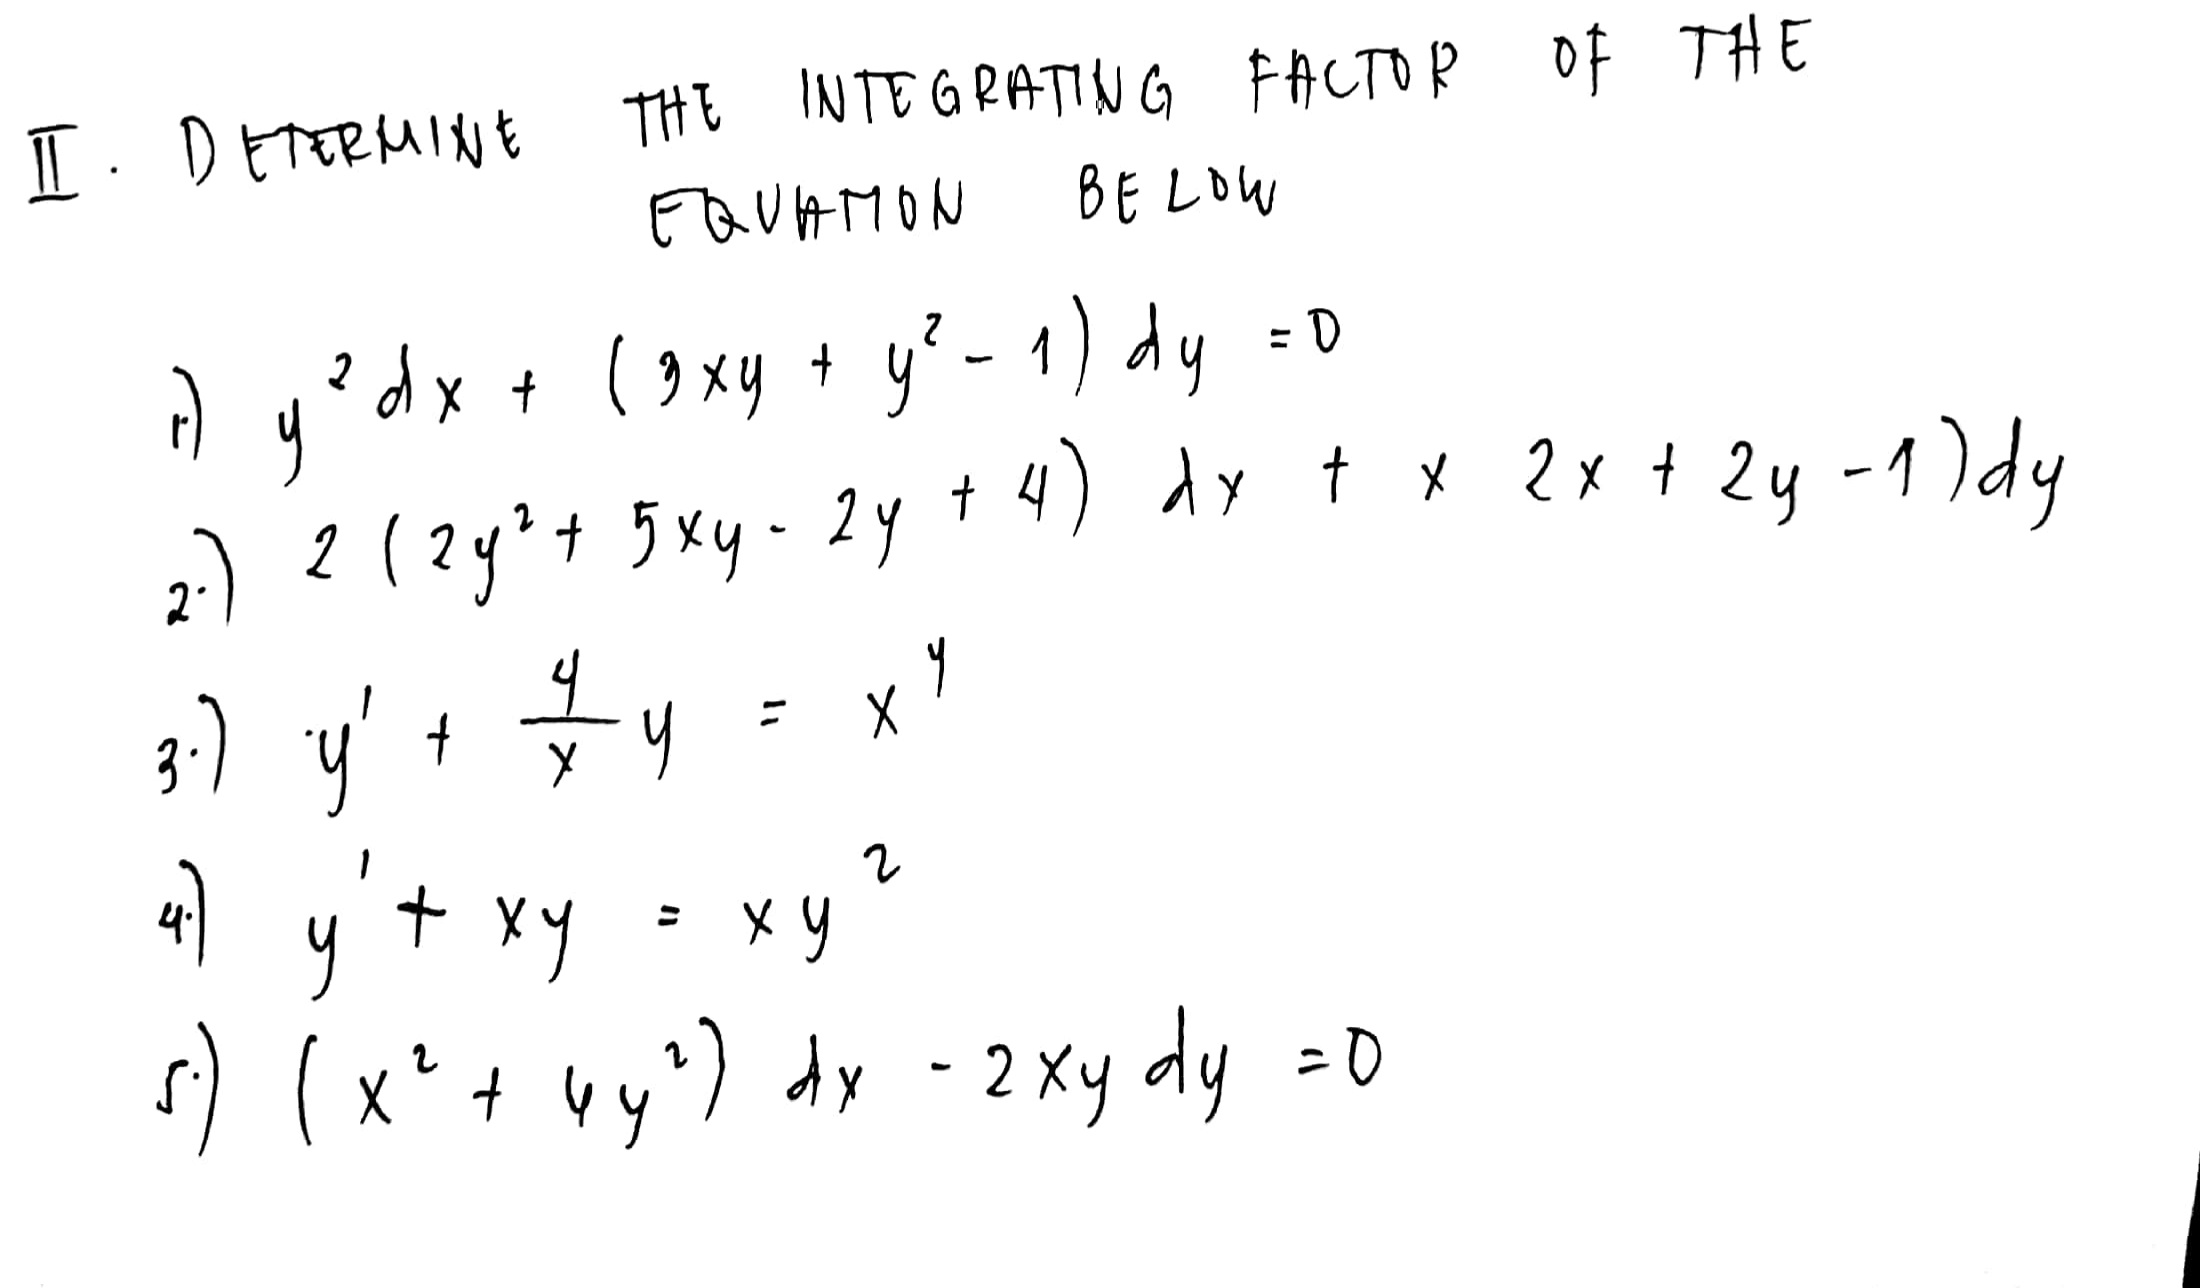 II. DETERMINE THE INTEGRATING FACTOR OF THE
EQUATION BELOW
1.) y² dx + (3xy + y² - 1) dy = 0
2.) 2 (2y² + 5xy - 2y + 4) dx + x 2x + 2y - 1) dy
3.) y' + 4/x y = x⁴
4.) y' + xy = xy²
5.) (x² + 4y²) dx - 2xy dy = 0